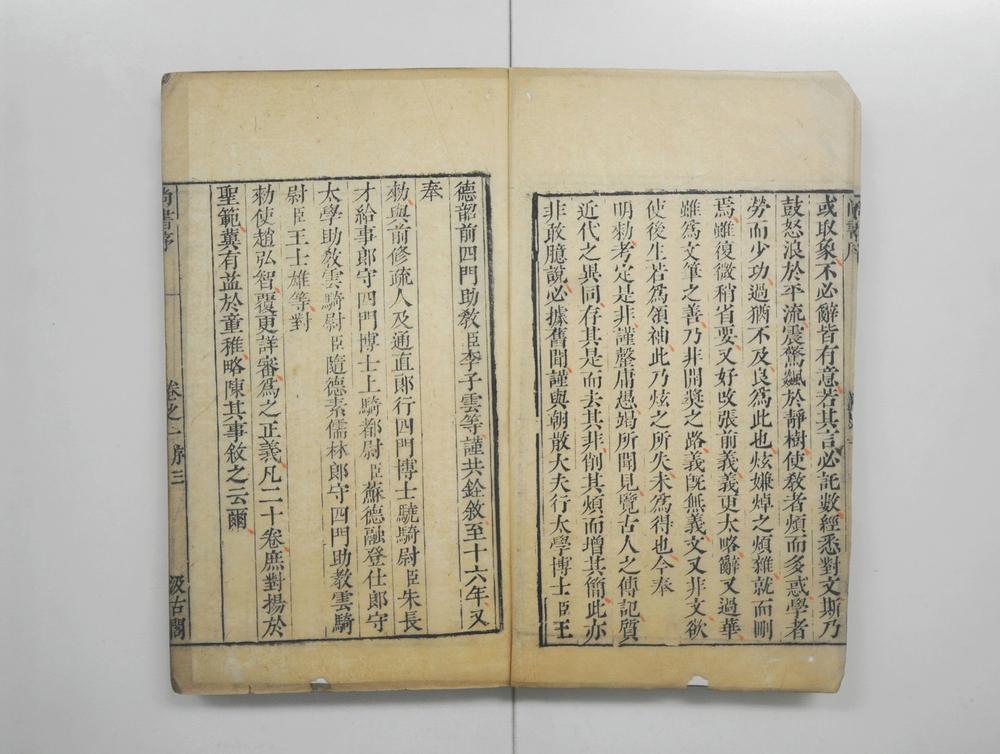 或取象不必辭皆有意若其言必託數經悉對文斯乃
鼓怒浪於平流震驚飇於靜樹使敎者煩而多惑學者
勞而少功過猶不及良爲此也炫嫌焯之煩雜就而刪
焉雖復微稍省要又好改張前義義更太略辭又過華
雖爲文筆之善乃非開奬之路義旣無義文又非文欲
使後生若爲領袖此乃炫之所失未爲得也今奉
明勑考定是非謹罄庸愚竭所聞見覽古人之傳記質
近代之異同存其是而去其非削其煩而增其簡此亦
非敢臆說必據舊聞謹與朝散大夫行太學博士臣王
德韶前四門助敎臣李子雲等謹共銓敘至十六年又
奉
勑與前修疏人及通直郎行四門博士驍騎尉臣朱長
才給事郎守四門博士上騎都尉臣蘇德融登仕郎守
太學助敎雲騎尉臣隨德素儒林郎守四門助敎雲騎
尉臣王士雄等對
勑使趙弘智覆更詳審爲之正義凡二十卷庶對揚於
聖範冀有益於童稚略陳其事敘之云爾
尚書序 卷之一序 三 汲古閣